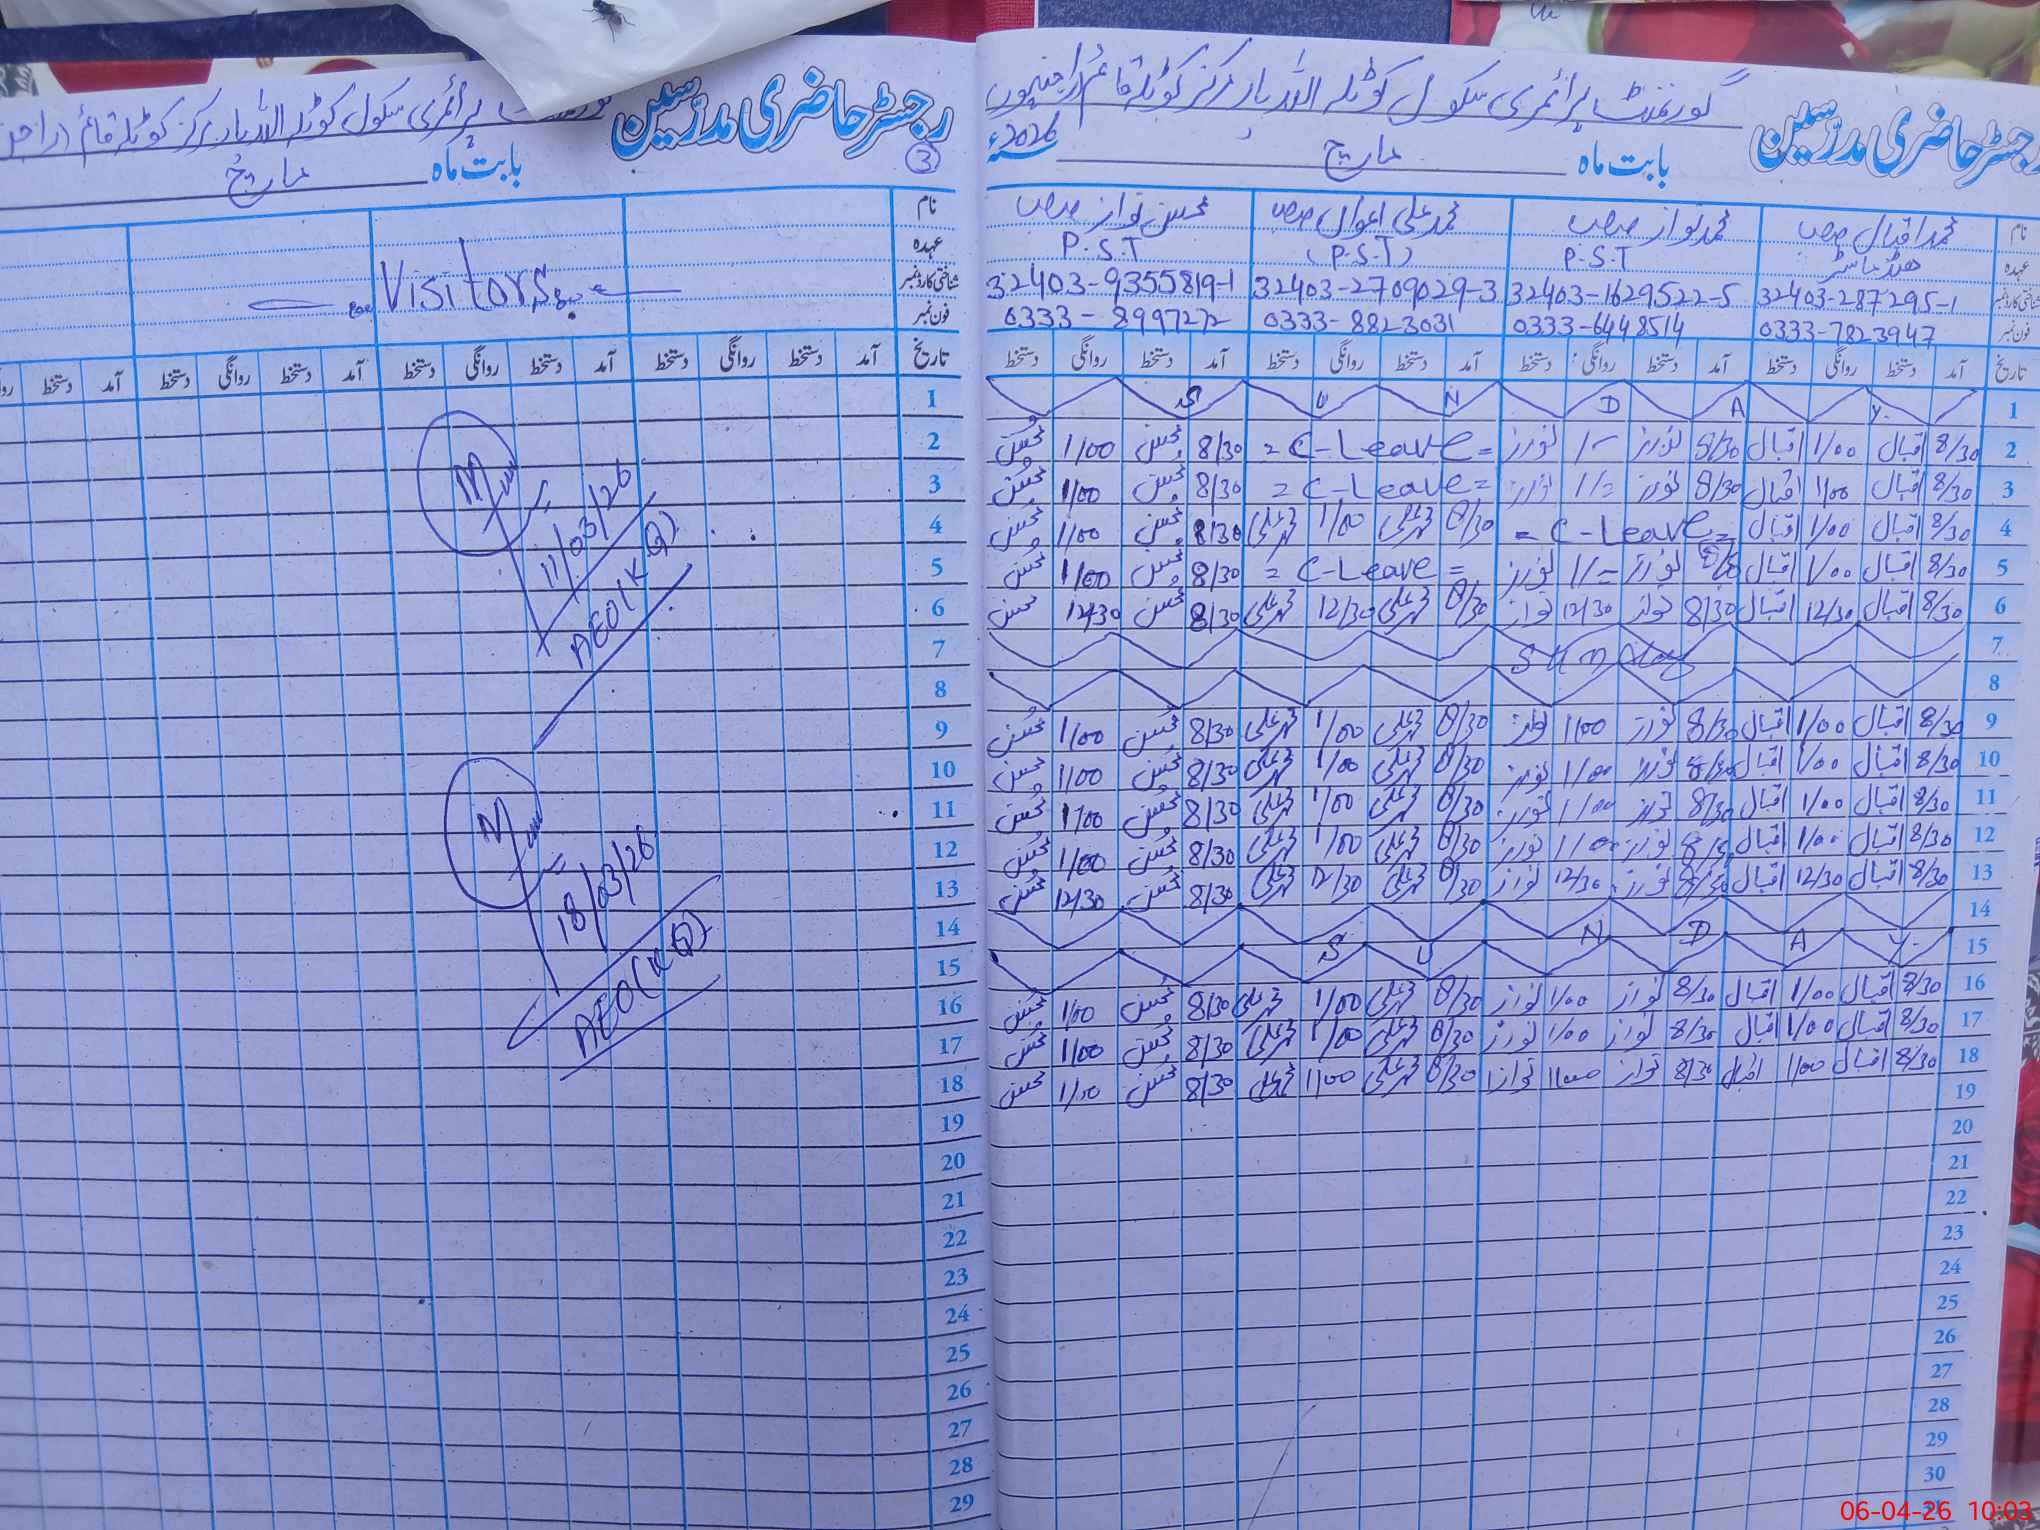 رجسٹر حاضری مدرسین
گورنمنٹ پرائمری سکول کوٹلہ اللہ یار مرکز کوٹلہ قائم راجنپور
بابت ماہ مارچ 2026ء
نام محمد اقبال صاحب محمد نواز صاحب محمد علی اعوان صاحب محسن نواز صاحب
عہدہ ہیڈ ماسٹر P.S.T (P.S.T) P.S.T
شناختی کارڈ نمبر 32403-287295-1 32403-1629522-5 32403-2709029-3 32403-9355819-1
فون نمبر 0333-7823947 0333-6448514 0333-8823031 0333-8997272
تاریخ آمد دستخط روانگی دستخط آمد دستخط روانگی دستخط آمد دستخط روانگی دستخط آمد دستخط روانگی دستخط
1 S U N D A Y.
2 8/30 اقبال 1/00 اقبال 8/30 نواز 1/- نواز = C-Leave = 8/30 محسن 1/00 محسن
3 8/30 اقبال 1/00 اقبال 8/30 نواز 1/= نواز = C-Leave = 8/30 محسن 1/00 محسن
4 8/30 اقبال 1/00 اقبال = C-Leave = 8/30 محمد علی 1/00 محمد علی 8/30 محسن 1/00 محسن
5 8/30 اقبال 1/00 اقبال نواز 1/- نواز = C-Leave = 8/30 محسن 1/00 محسن
6 8/30 اقبال 12/30 اقبال 8/30 نواز 12/30 نواز 8/30 محمد علی 12/30 محمد علی 8/30 محسن 12/30 محسن
7 Sunday
8
9 8/30 اقبال 1/00 اقبال 8/30 نواز 1/00 نواز 8/30 محمد علی 1/00 محمد علی 8/30 محسن 1/00 محسن
10 8/30 اقبال 1/00 اقبال 8/30 نواز 1/00 نواز 8/30 محمد علی 1/00 محمد علی 8/30 محسن 1/00 محسن
11 8/30 اقبال 1/00 اقبال 8/30 نواز 1/00 نواز 8/30 محمد علی 1/00 محمد علی 8/30 محسن 1/00 محسن
12 8/30 اقبال 1/00 اقبال 8/30 نواز 1/00 نواز 8/30 محمد علی 1/00 محمد علی 8/30 محسن 1/00 محسن
13 8/30 اقبال 12/30 اقبال 8/30 نواز 12/30 نواز 8/30 محمد علی 12/30 محمد علی 8/30 محسن 12/30 محسن
14
15 S U N D A Y.
16 8/30 اقبال 1/00 اقبال 8/30 نواز 1/00 نواز 8/30 محمد علی 1/00 محمد علی 8/30 محسن 1/00 محسن
17 8/30 اقبال 1/00 اقبال 8/30 نواز 1/00 نواز 8/30 محمد علی 1/00 محمد علی 8/30 محسن 1/00 محسن
18 8/30 اقبال 1/00 اقبال 8/30 نواز 1/00 نواز 8/30 محمد علی 1/00 محمد علی 8/30 محسن 1/00 محسن
19
20
21
22
23
24
25
26
27
28
29
30
رجسٹر حاضری مدرسین
3
پرائمری سکول کوٹلہ اللہ یار مرکز کوٹلہ قائم
بابت ماہ مارچ
نام
عہدہ
شناختی کارڈ نمبر Visitors
فون نمبر
تاریخ آمد دستخط روانگی دستخط آمد دستخط روانگی دستخط آمد دستخط روانگی دستخط آمد دستخط
1
2
3
4
5 11/03/26
6 AEO(KQ)
7
8
9
10
11
12
13 18/03/26
14
15
16 AEO(KQ)
17
18
19
20
21
22
23
24
25
26
27
28
29
06-04-26 10:03